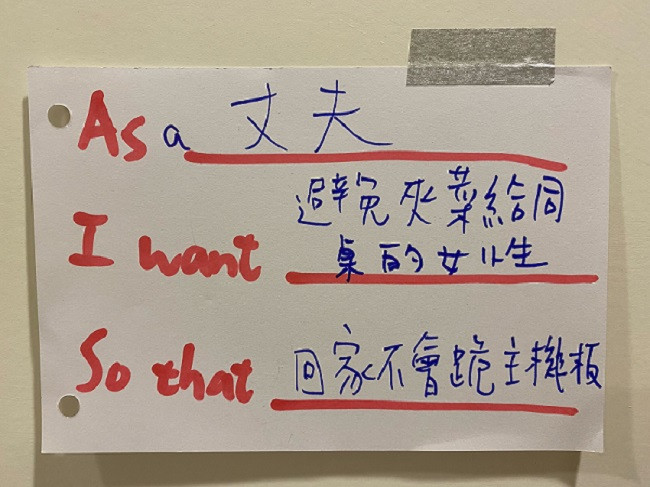 As a 丈夫
避免夾菜給同
I want 桌的女性
So that 回家不會跪主機板